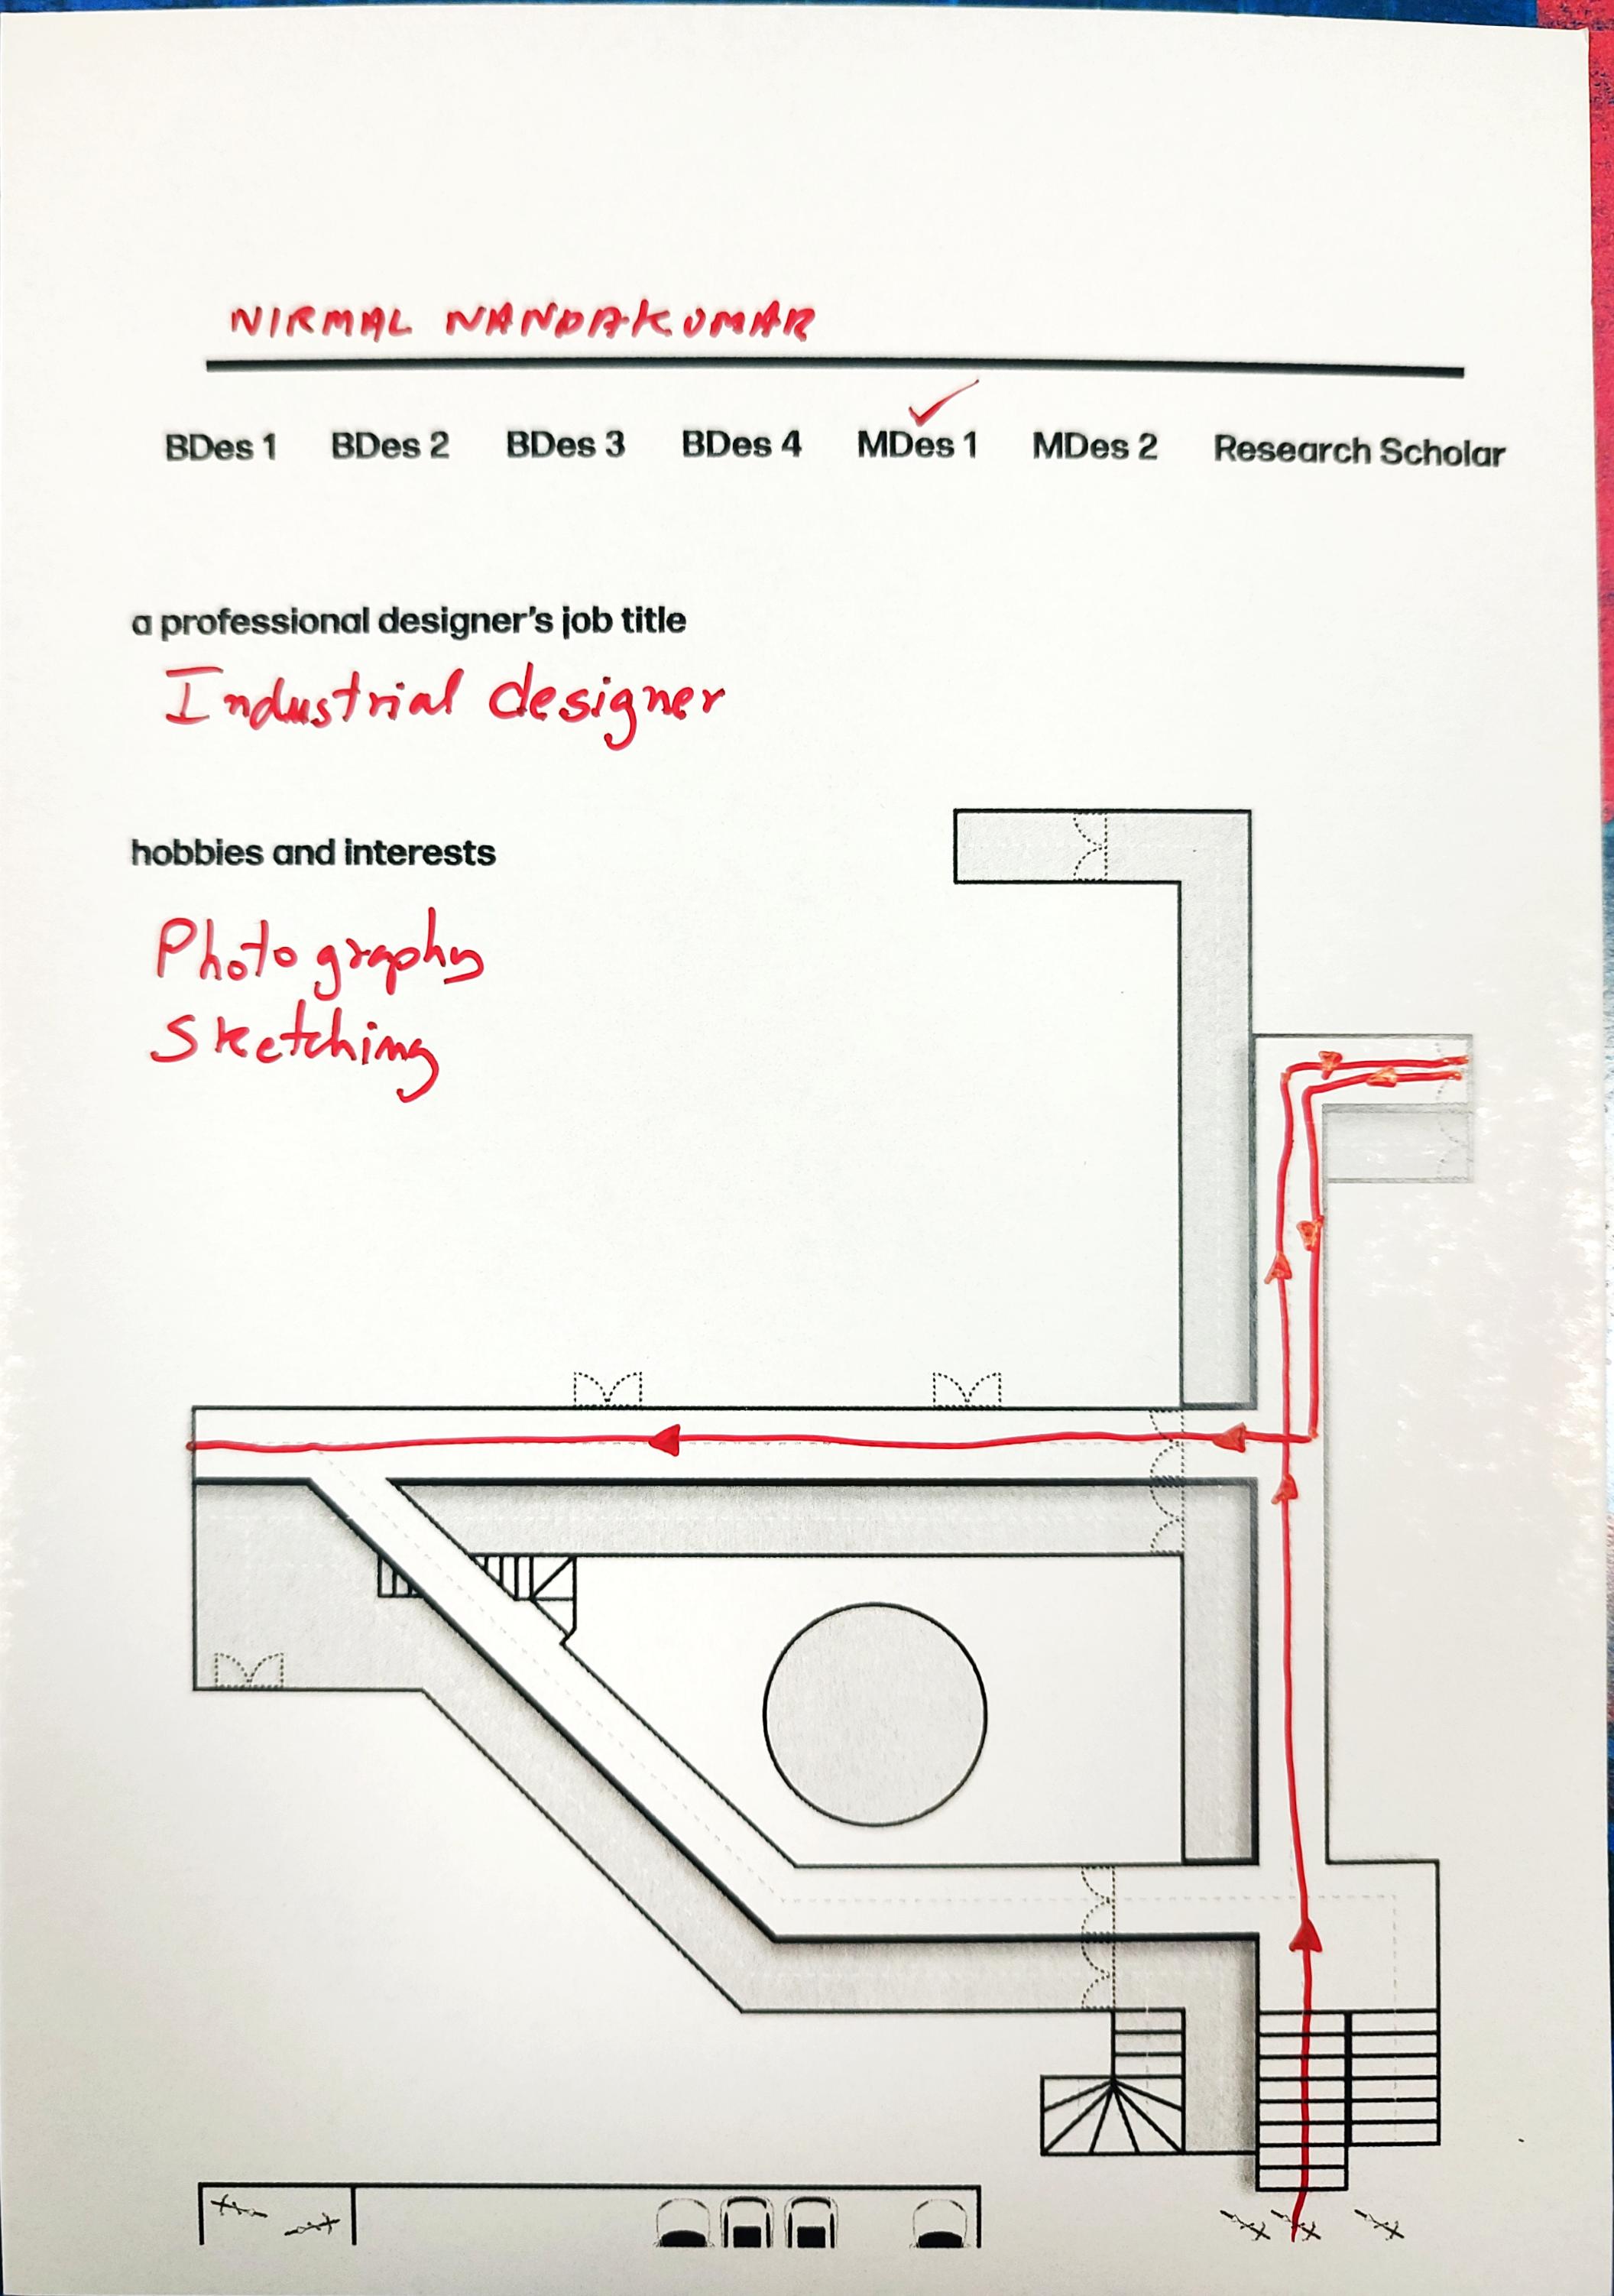 NIRMAL NANDAKUMAR
BDes 1 BDes 2 BDes 3 BDes 4 MDes 1 MDes 2 Research Scholar
a professional designer's job title
Industrial designer
hobbies and interests
Photography
Sketching